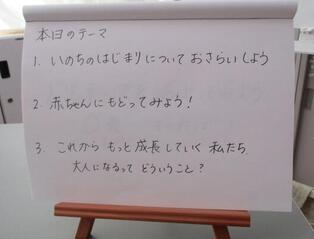 本日のテーマ
1. いのちのはじまりについて おさらいしよう
2. 赤ちゃんにもどってみよう！
3. これから もっと 成長していく 私たち、
大人になるって どういうこと？